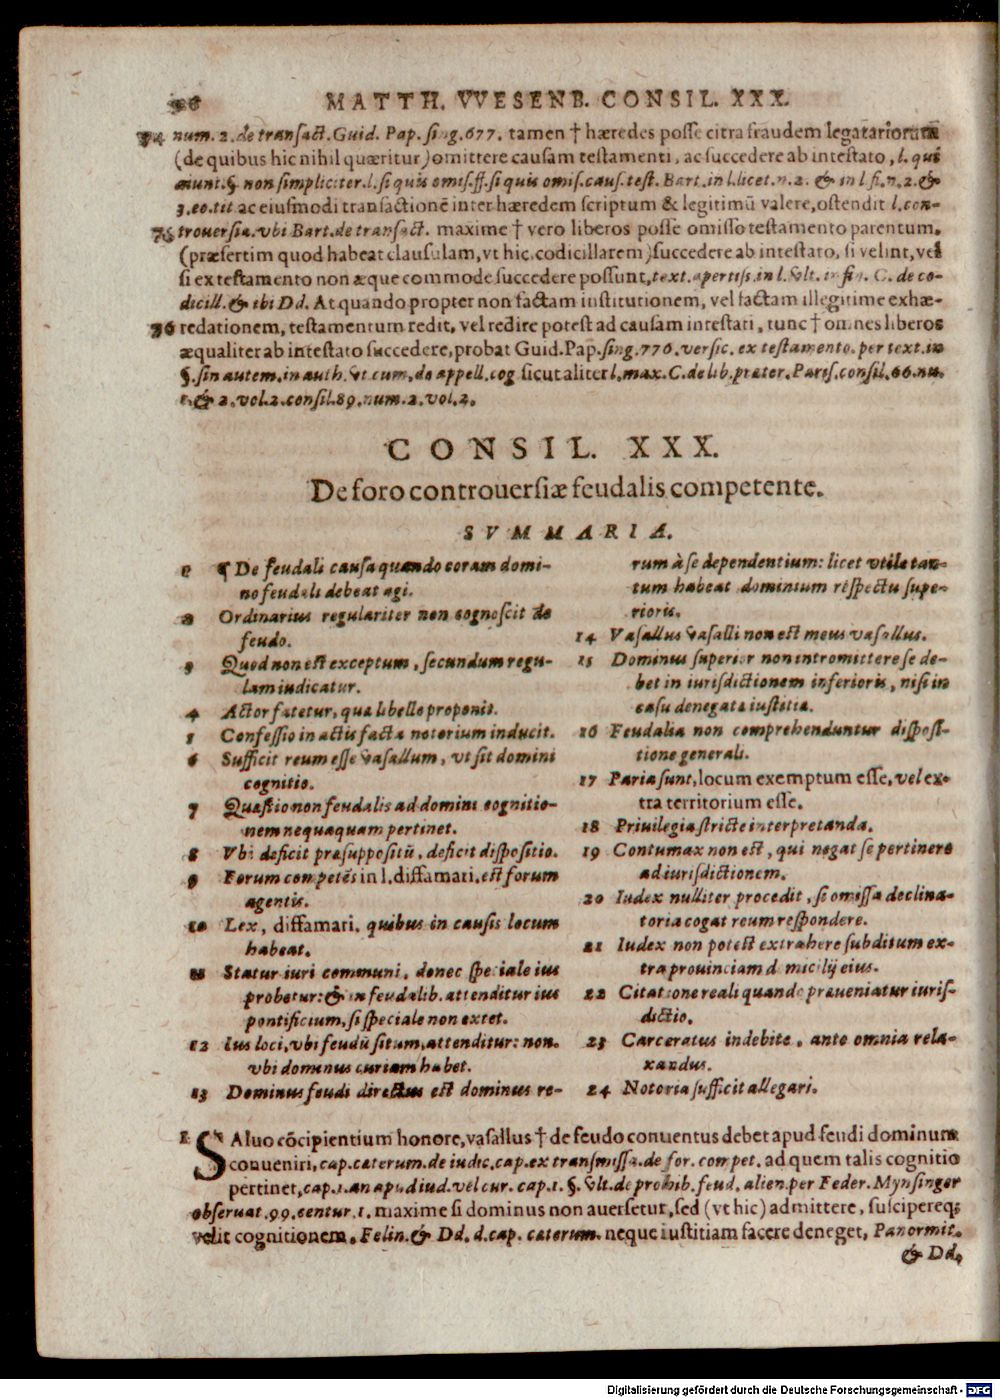 MATTH. VVESENB. CONSIL. XXX.
74 num. 2. de transact. Guid. Pap. sing. 677. tamen † hæredes posse citra fraudem legatariorum
(de quibus hic nihil quæritur) omittere causam testamenti, ac succedere ab intestato, l. qui
aiunt. §. non simpliciter. l. si quis omis. ff. si quis omis. caus. test. Bart. in l. licet. n. 2. & in l. fi. n. 2. &
3. eo. tit. ac eiusmodi transactionē inter hæredem scriptum & legitimū valere, ostendit l. con-
75 trouersia. vbi Bart. de transact. maxime † vero liberos posse omisso testamento parentum.
(præsertim quod habeat clausulam, vt hic. codicillarem) succedere ab intestato, si velint, vel
si ex testamento non æque commode succedere possunt, text. apertiss. in l. vlt. in fin. C. de co-
dicill. & ibi Dd. At quando propter non factam institutionem, vel factam illegitime exhæ-
76 redationem, testamentum redit, vel redire potest ad causam intestati, tunc † omnes liberos
æqualiter ab intestato succedere, probat Guid. Pap. sing. 776. versic. ex testamento. per text. in
§. sin autem. in auth. vt cum, de appell. cog sicut aliter l. max. C. de lib. præter. Paris. consil. 66. nu.
1. & 2. vol. 2. consil. 89. num. 2. vol. 2.
CONSIL. XXX.
De foro controuersiæ feudalis competente.
SVMMARIA.
1 ¶ De feudali causa quando coram domi-
no feudali debeat agi.
2 Ordinarius regulariter non cognoscit de
feudo.
3 Quod non est exceptum, secundum regu-
lam iudicatur.
4 Actor fatetur, quæ libello proponit.
5 Confessio in actis facta notorium inducit.
6 Sufficit reum esse vasallum, vt sit domini
cognitio.
7 Quæstio non feudalis ad domini cognitio-
nem nequaquam pertinet.
8 Vbi deficit præsuppositū, deficit dispositio.
9 Forum competēs in l. diffamari. est forum
agentis.
10 Lex, diffamari. quibus in causis locum
habeat.
11 Statur iuri communi, donec speciale ius
probetur: & in feudalib. attenditur ius
pontificium, si speciale non extet.
12 Ius loci, vbi feudū situm, attenditur: non.
vbi dominus curiam habet.
13 Dominus feudi directus est dominus re-
rum à se dependentium: licet vtile tan-
tum habeat dominium respectu supe-
rioris.
14 Vasallus vasalli non est meus vasallus.
15 Dominus superior non intromittere se de-
bet in iurisdictionem inferioris, nisi in
casu denegatæ iustitiæ.
16 Feudalia non comprehenduntur disposi-
tione generali.
17 Paria sunt, locum exemptum esse, vel ex-
tra territorium esse.
18 Priuilegia stricte interpretanda.
19 Contumax non est, qui negat se pertinere
ad iurisdictionem.
20 Iudex nulliter procedit, si omissa declina-
toria cogat reum respondere.
21 Iudex non potest extrahere subditum ex-
tra prouinciam domicilij eius.
22 Citatione reali quando præueniatur iuris-
dictio.
23 Carceratus indebite, ante omnia rela-
xandus.
24 Notoria sufficit allegari.
1 SAluo cōcipientium honore, vasallus † de feudo conuentus debet apud feudi dominum
conueniri, cap. cæterum. de iudic. cap. ex transmissa. de for. compet. ad quem talis cognitio
pertinet, cap. 1. an apud iud. vel cur. cap. 1. §. vlt. de prohib. feud. alien. per Feder. Mynsinger
obseruat. 99. centur. 1. maxime si dominus non auersetur, sed (vt hic) admittere, suscipereq;
velit cognitionem. Felin. & Dd. d. cap. cæterum. neque iustitiam facere deneget, Panormit.
& Dd,
Digitalisierung gefördert durch die Deutsche Forschungsgemeinschaft - DFG